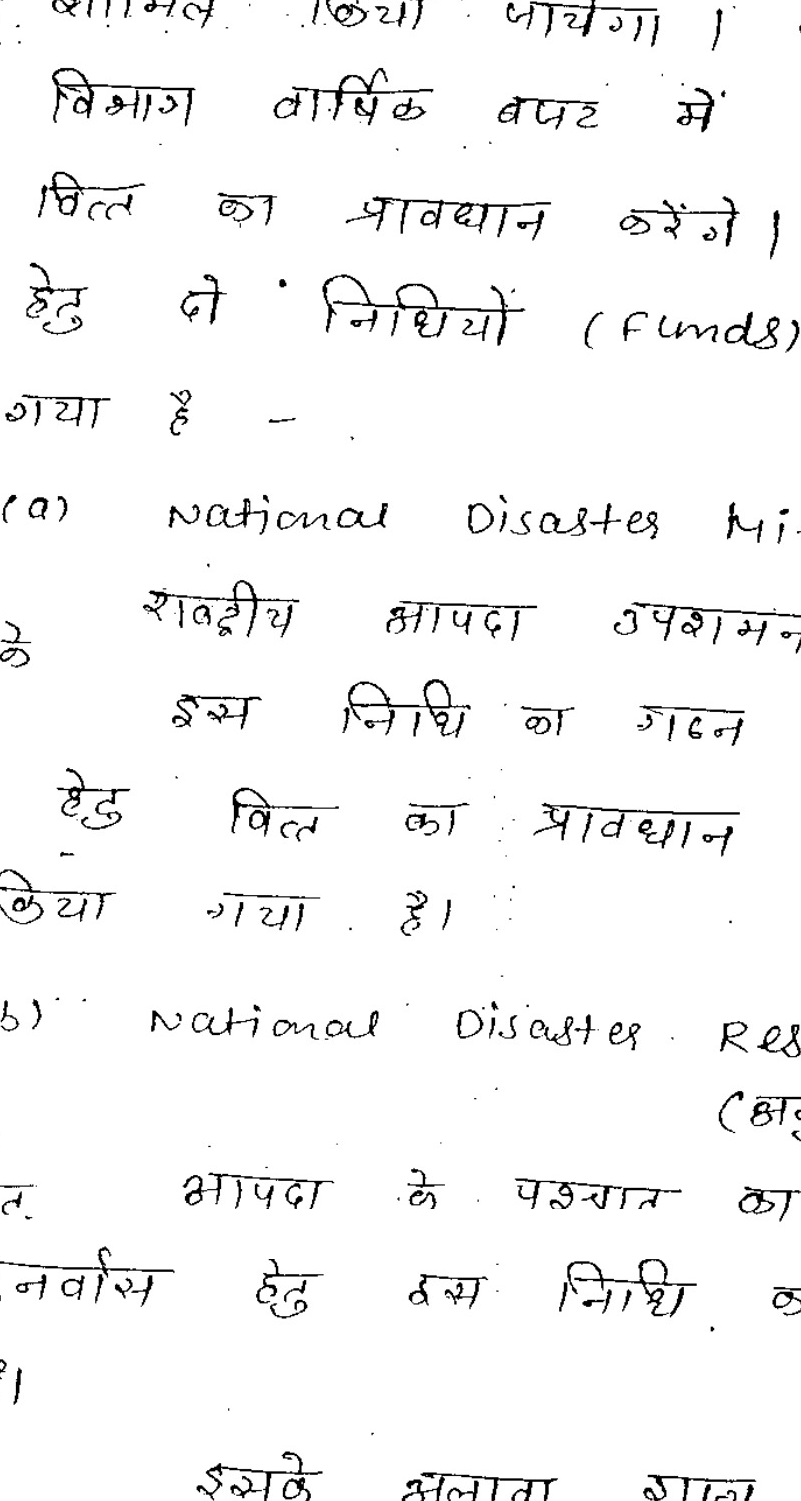 शामिल किया जायेगा ।
विभाग वार्षिक बजट में
वित्त का प्रावधान करेंगे ।
हेतु दो निधियों (Funds)
गया है -
(a) National Disaster Mi
के राष्ट्रीय आपदा उपशमन
इस निधि का गठन
हेतु वित्त का प्रावधान
किया गया है।
b) National Disaster Res
(अनु
त. आपदा के पश्चात का
नर्वास हेतु इस निधि क
है।
इसके अलावा